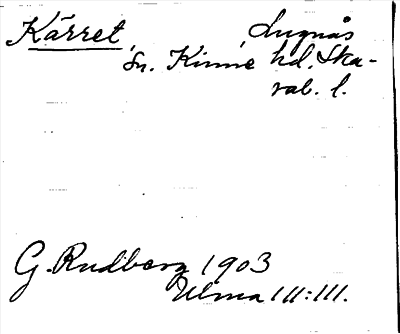 Kärret, Lugnås
sn. Kinne hd. Ska-
rab. l.
G. Rudberg 1903
Ulma 111:111.